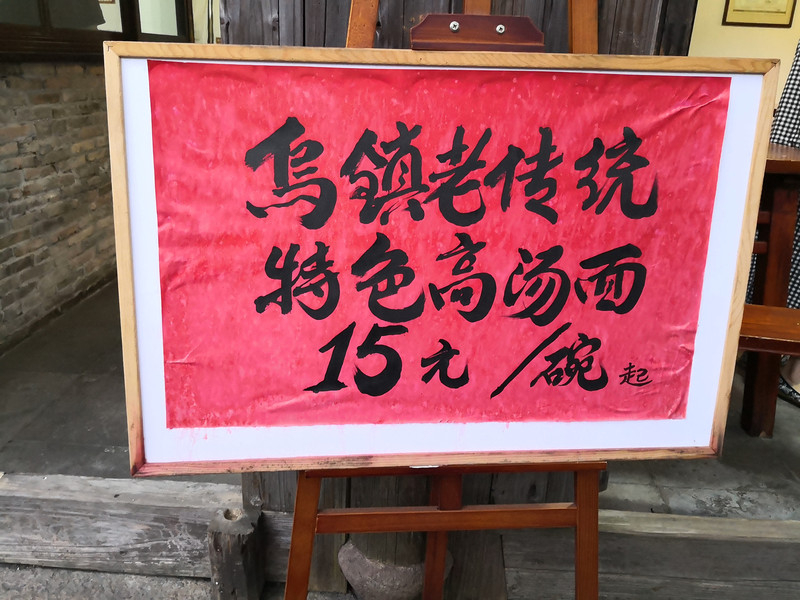 烏鎮老传统
特色高汤面
15元/碗起